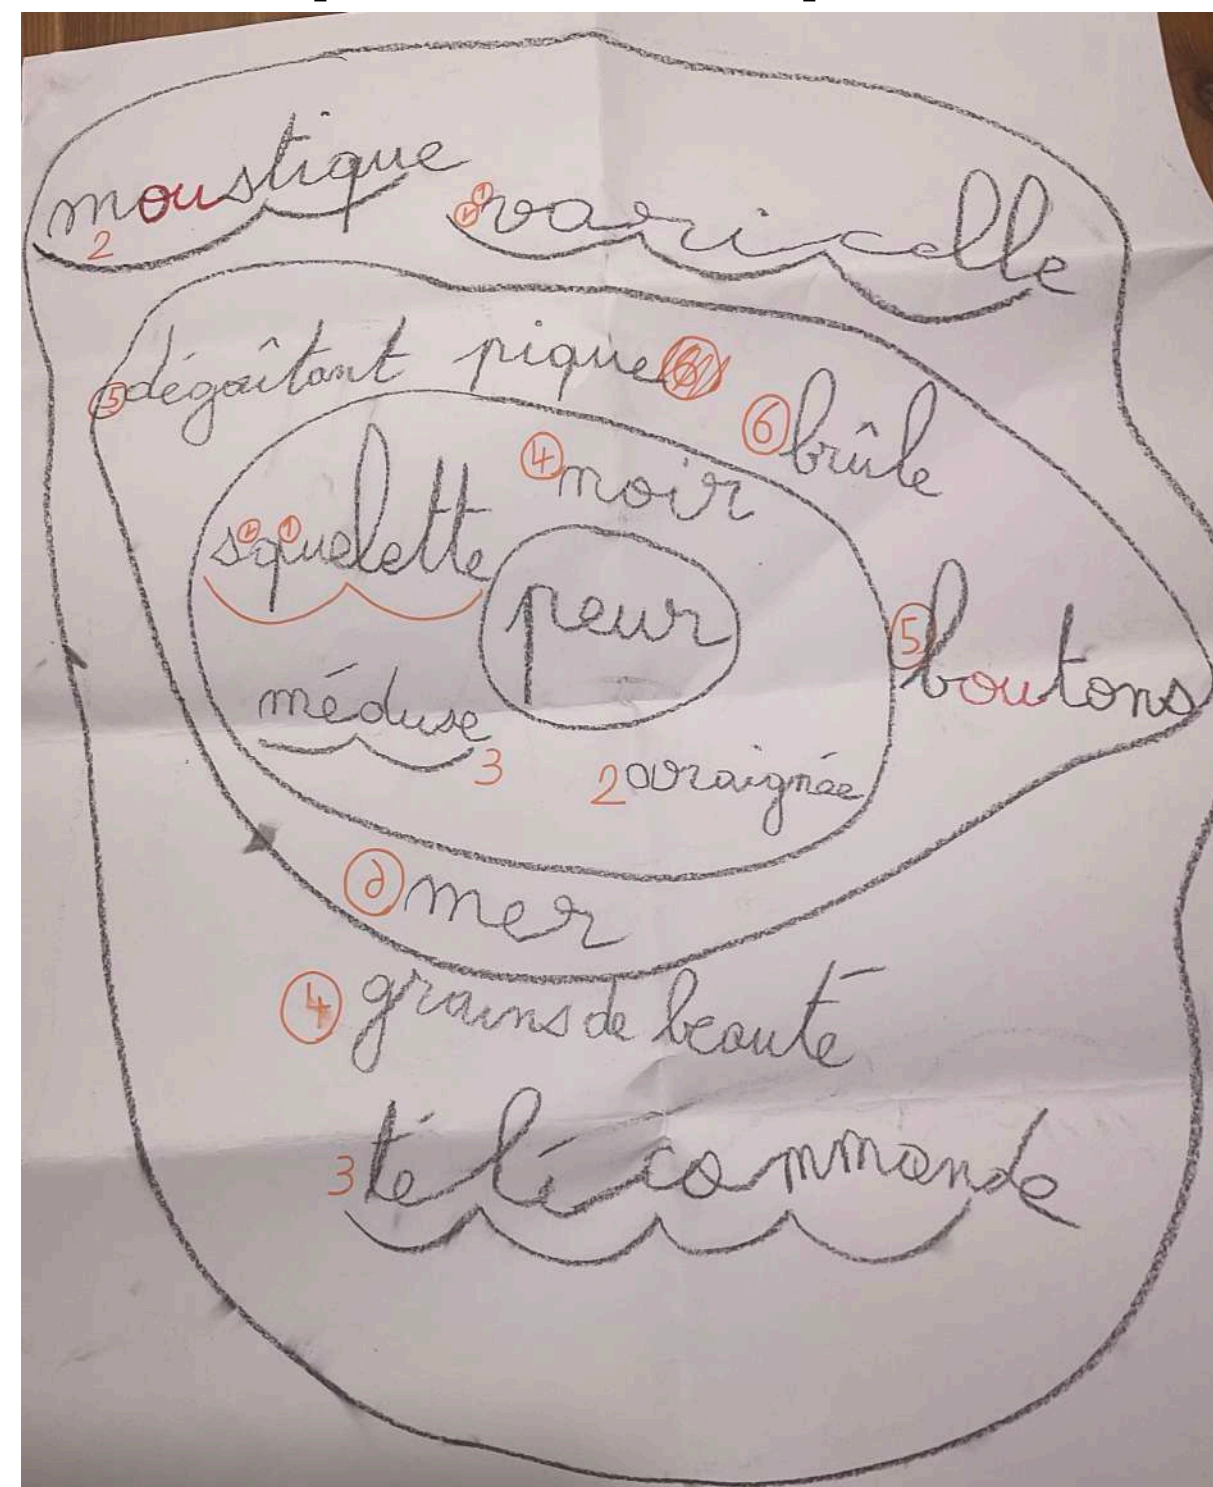 moustique
2
varicelle
dégoûtant pique
5
6 brûle
4 noir
squelette
peur
5 boutons
méduse
3
2 araignée
mer
4 grains de beauté
3 télécommande